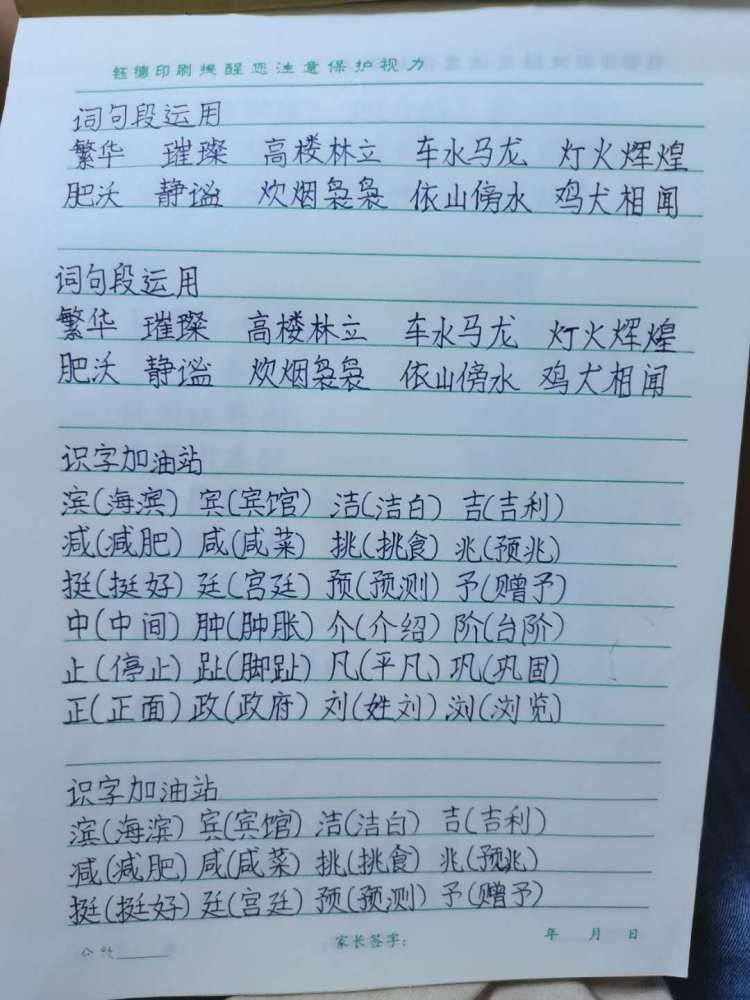 钰德印刷提醒您注意保护视力
词句段运用
繁华 璀璨 高楼林立 车水马龙 灯火辉煌
肥沃 静谧 炊烟袅袅 依山傍水 鸡犬相闻
词句段运用
繁华 璀璨 高楼林立 车水马龙 灯火辉煌
肥沃 静谧 炊烟袅袅 依山傍水 鸡犬相闻
识字加油站
滨(海滨) 宾(宾馆) 洁(洁白) 吉(吉利)
减(减肥) 咸(咸菜) 挑(挑食) 兆(预兆)
挺(挺好) 廷(宫廷) 预(预测) 予(赠予)
中(中间) 肿(肿胀) 介(介绍) 阶(台阶)
止(停止) 趾(脚趾) 凡(平凡) 巩(巩固)
正(正面) 政(政府) 刘(姓刘) 浏(浏览)
识字加油站
滨(海滨) 宾(宾馆) 洁(洁白) 吉(吉利)
减(减肥) 咸(咸菜) 挑(挑食) 兆(预兆)
挺(挺好) 廷(宫廷) 预(预测) 予(赠予)
家长签字: 年 月 日